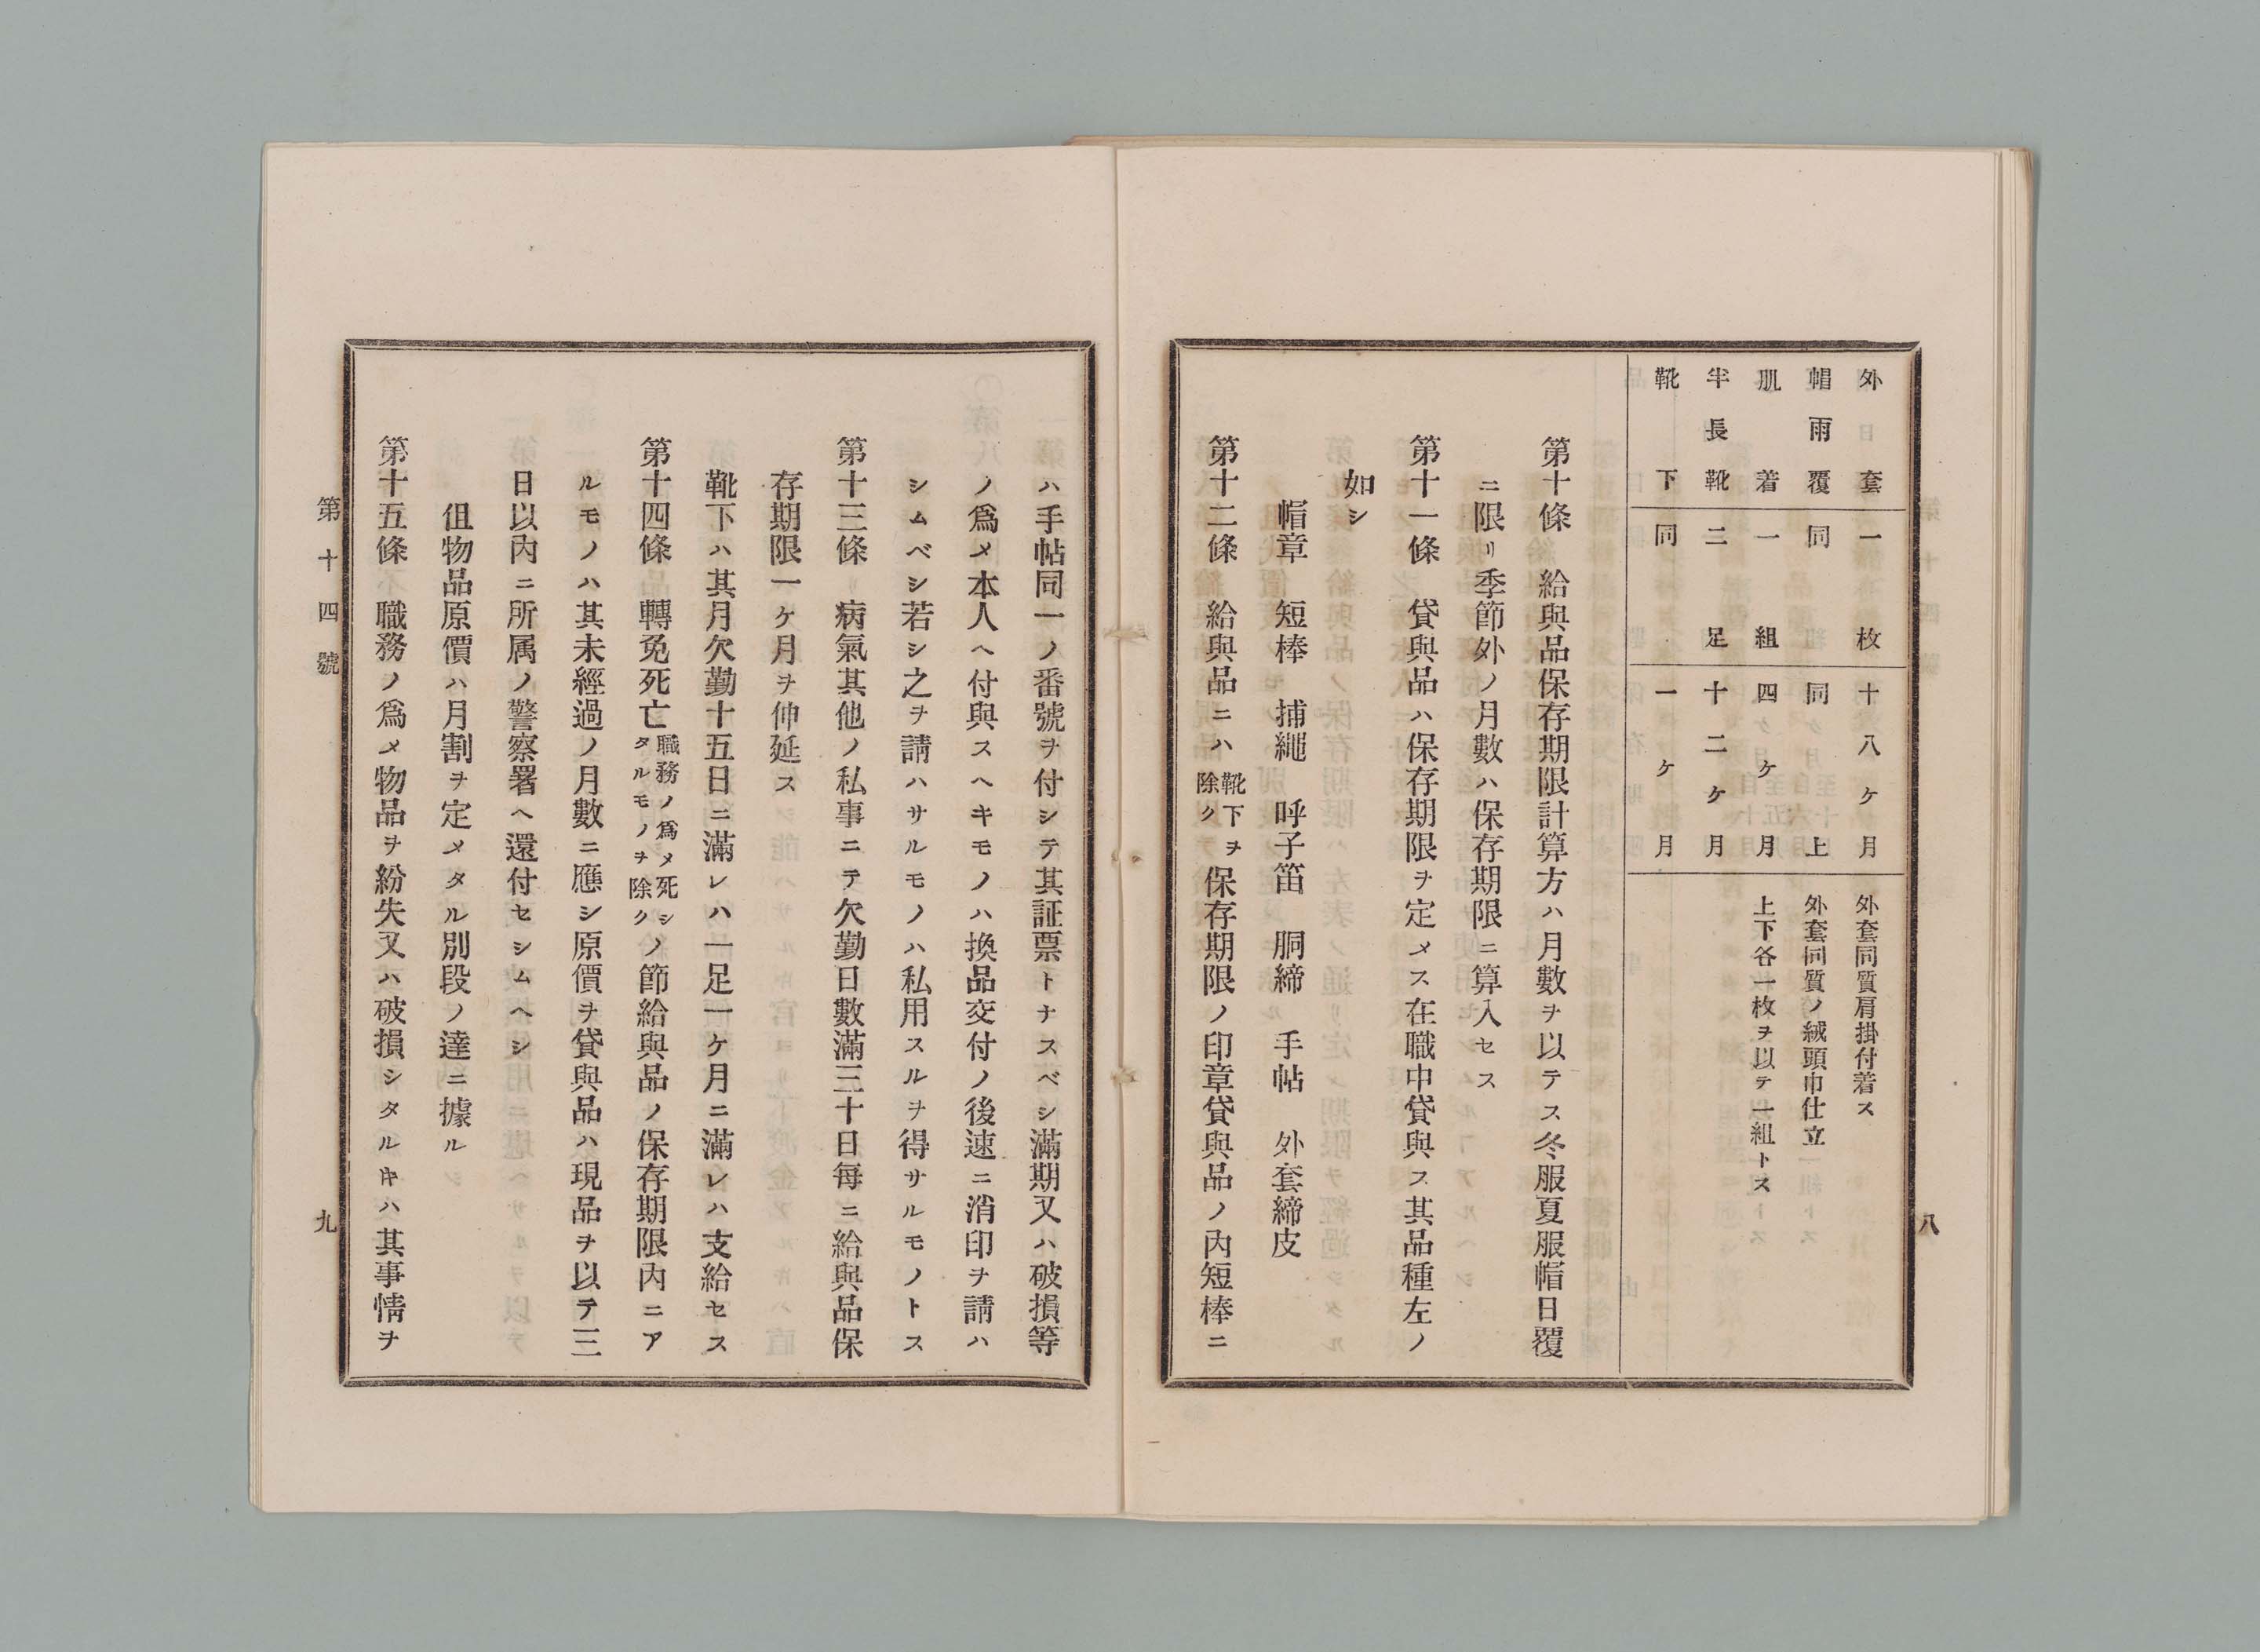 八
外套 一枚 十八ケ月 外套同質肩掛付着ス
帽雨覆 同 同上 外套同質ノ絨頭巾仕立
肌着 一組 四ケ月 上下各一枚ヲ以テ一組トス
半長靴 二足 十二ケ月
靴下 同 一ケ月
第十條 給與品保存期限計算方ハ月數ヲ以テス冬服夏服帽日覆
ニ限リ季節外ノ月數ハ保存期限ニ算入セス
第十一條 貸與品ハ保存期限ヲ定メス在職中貸與ス其品種左ノ
如シ
帽章 短棒 捕繩 呼子笛 胴締 手帖 外套締皮
第十二條 給與品ニハ靴下ヲ除ク保存期限ノ印章貸與品ノ内短棒ニ
ハ手帖同一ノ番號ヲ付シテ其証票トナスベシ滿期又ハ破損等
ノ爲メ本人ヘ付與スヘキモノハ換品交付ノ後速ニ消印ヲ請ハ
シムベシ若シ之ヲ請ハサルモノハ私用スルヲ得サルモノトス
第十三條 病氣其他ノ私事ニテ欠勤日數滿三十日毎ニ給與品保
存期限一ケ月ヲ伸延ス
靴下ハ其月欠勤十五日ニ滿レハ一足一ケ月ニ滿レハ支給セス
第十四條 轉免死亡職務ノ爲メ死シタルモノヲ除クノ節給與品ノ保存期限内ニア
ルモノハ其未經過ノ月數ニ應シ原價ヲ貸與品ハ現品ヲ以テ三
日以内ニ所属ノ警察署ヘ還付セシムヘシ
伹物品原價ハ月割ヲ定メタル別段ノ達ニ據ル
第十五條 職務ノ爲メ物品ヲ紛失又ハ破損シタルキハ其事情ヲ
第十四號
九